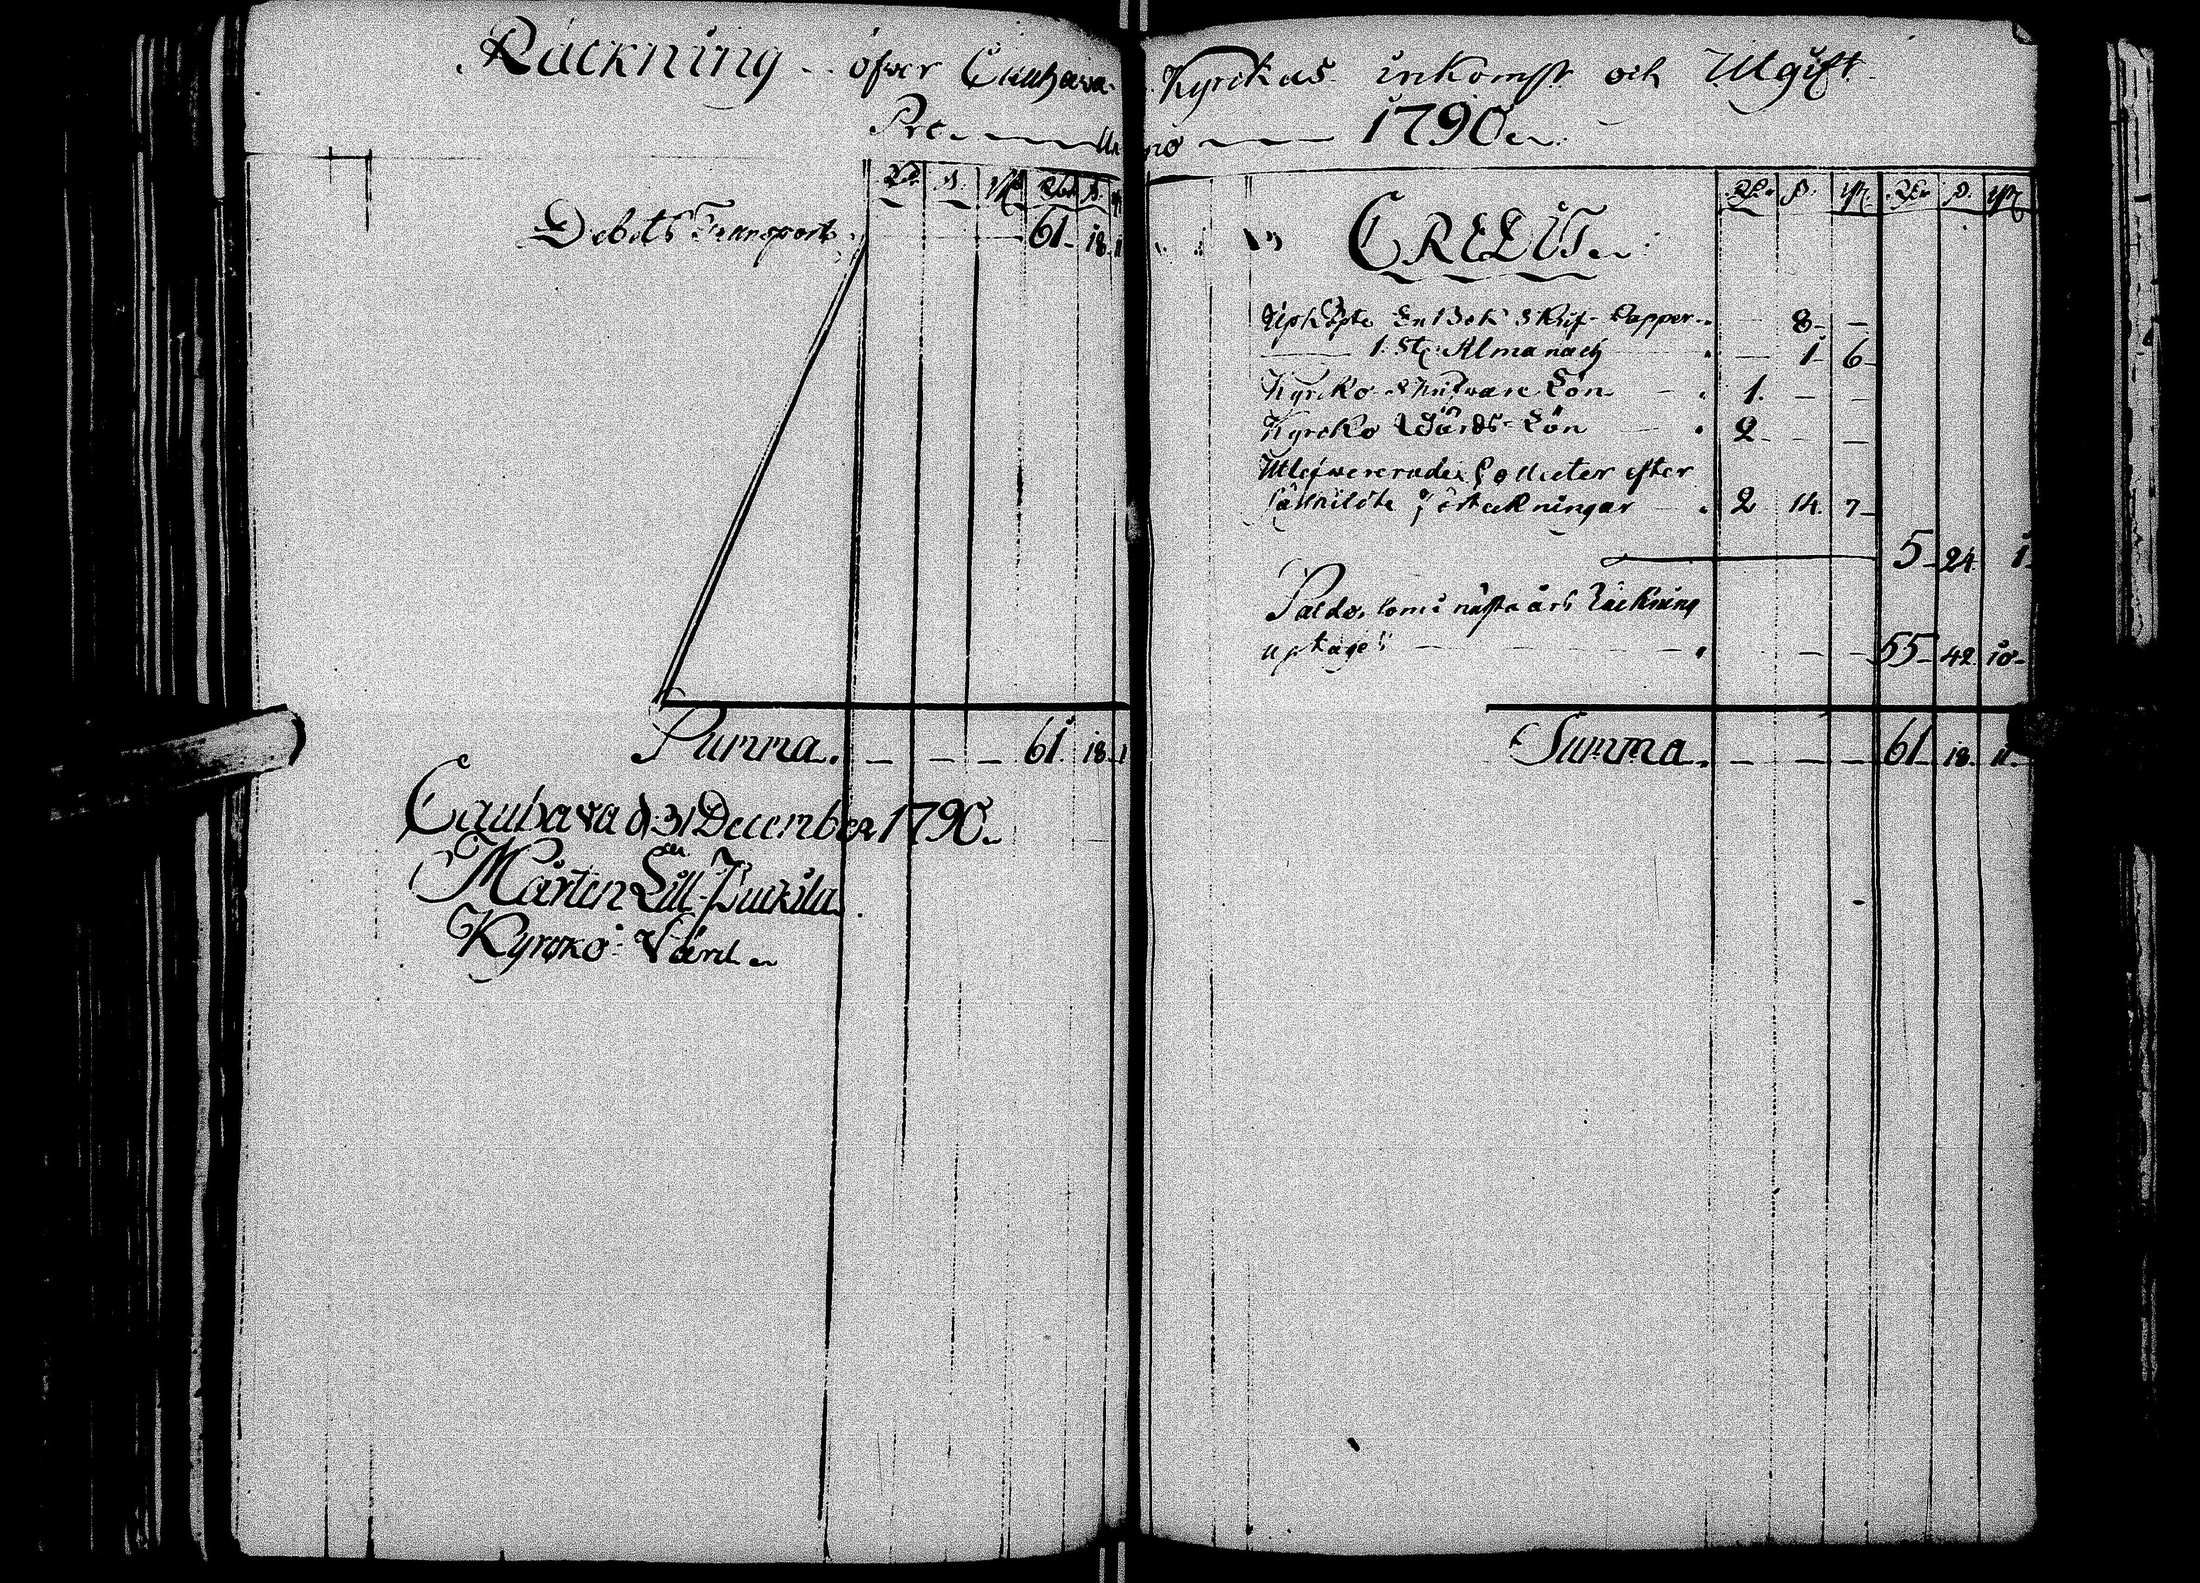 Räckning öfver Cauhava Kyrckas inkomst och Utgift
Pro Anno 1790
Rd. ß. rst. Rdr ß.
Debets Transport 61 18 11
Summa. — — — 61. 18. 11
Cauhava d 31 December 1790.
Mårten Lill-Luckila
Kyrcko-Värd
Rdr ß. rst. Rdr ß. rst.
CREDIT
Upköpte En Bok Skrif-Papper — 8 —
1. St. Almanach — 1 6
Kyrko-Skrifvare Lön 1. — —
Kyrcko Värds-Lön 2 — —
Utlefwererade Collecter efter
särskildte förteckningar 2 14 7
5 24 1
Saldo, som i nästa års Räckning
uptages — — 55 42 10
Summa. — — — 61 18. 11